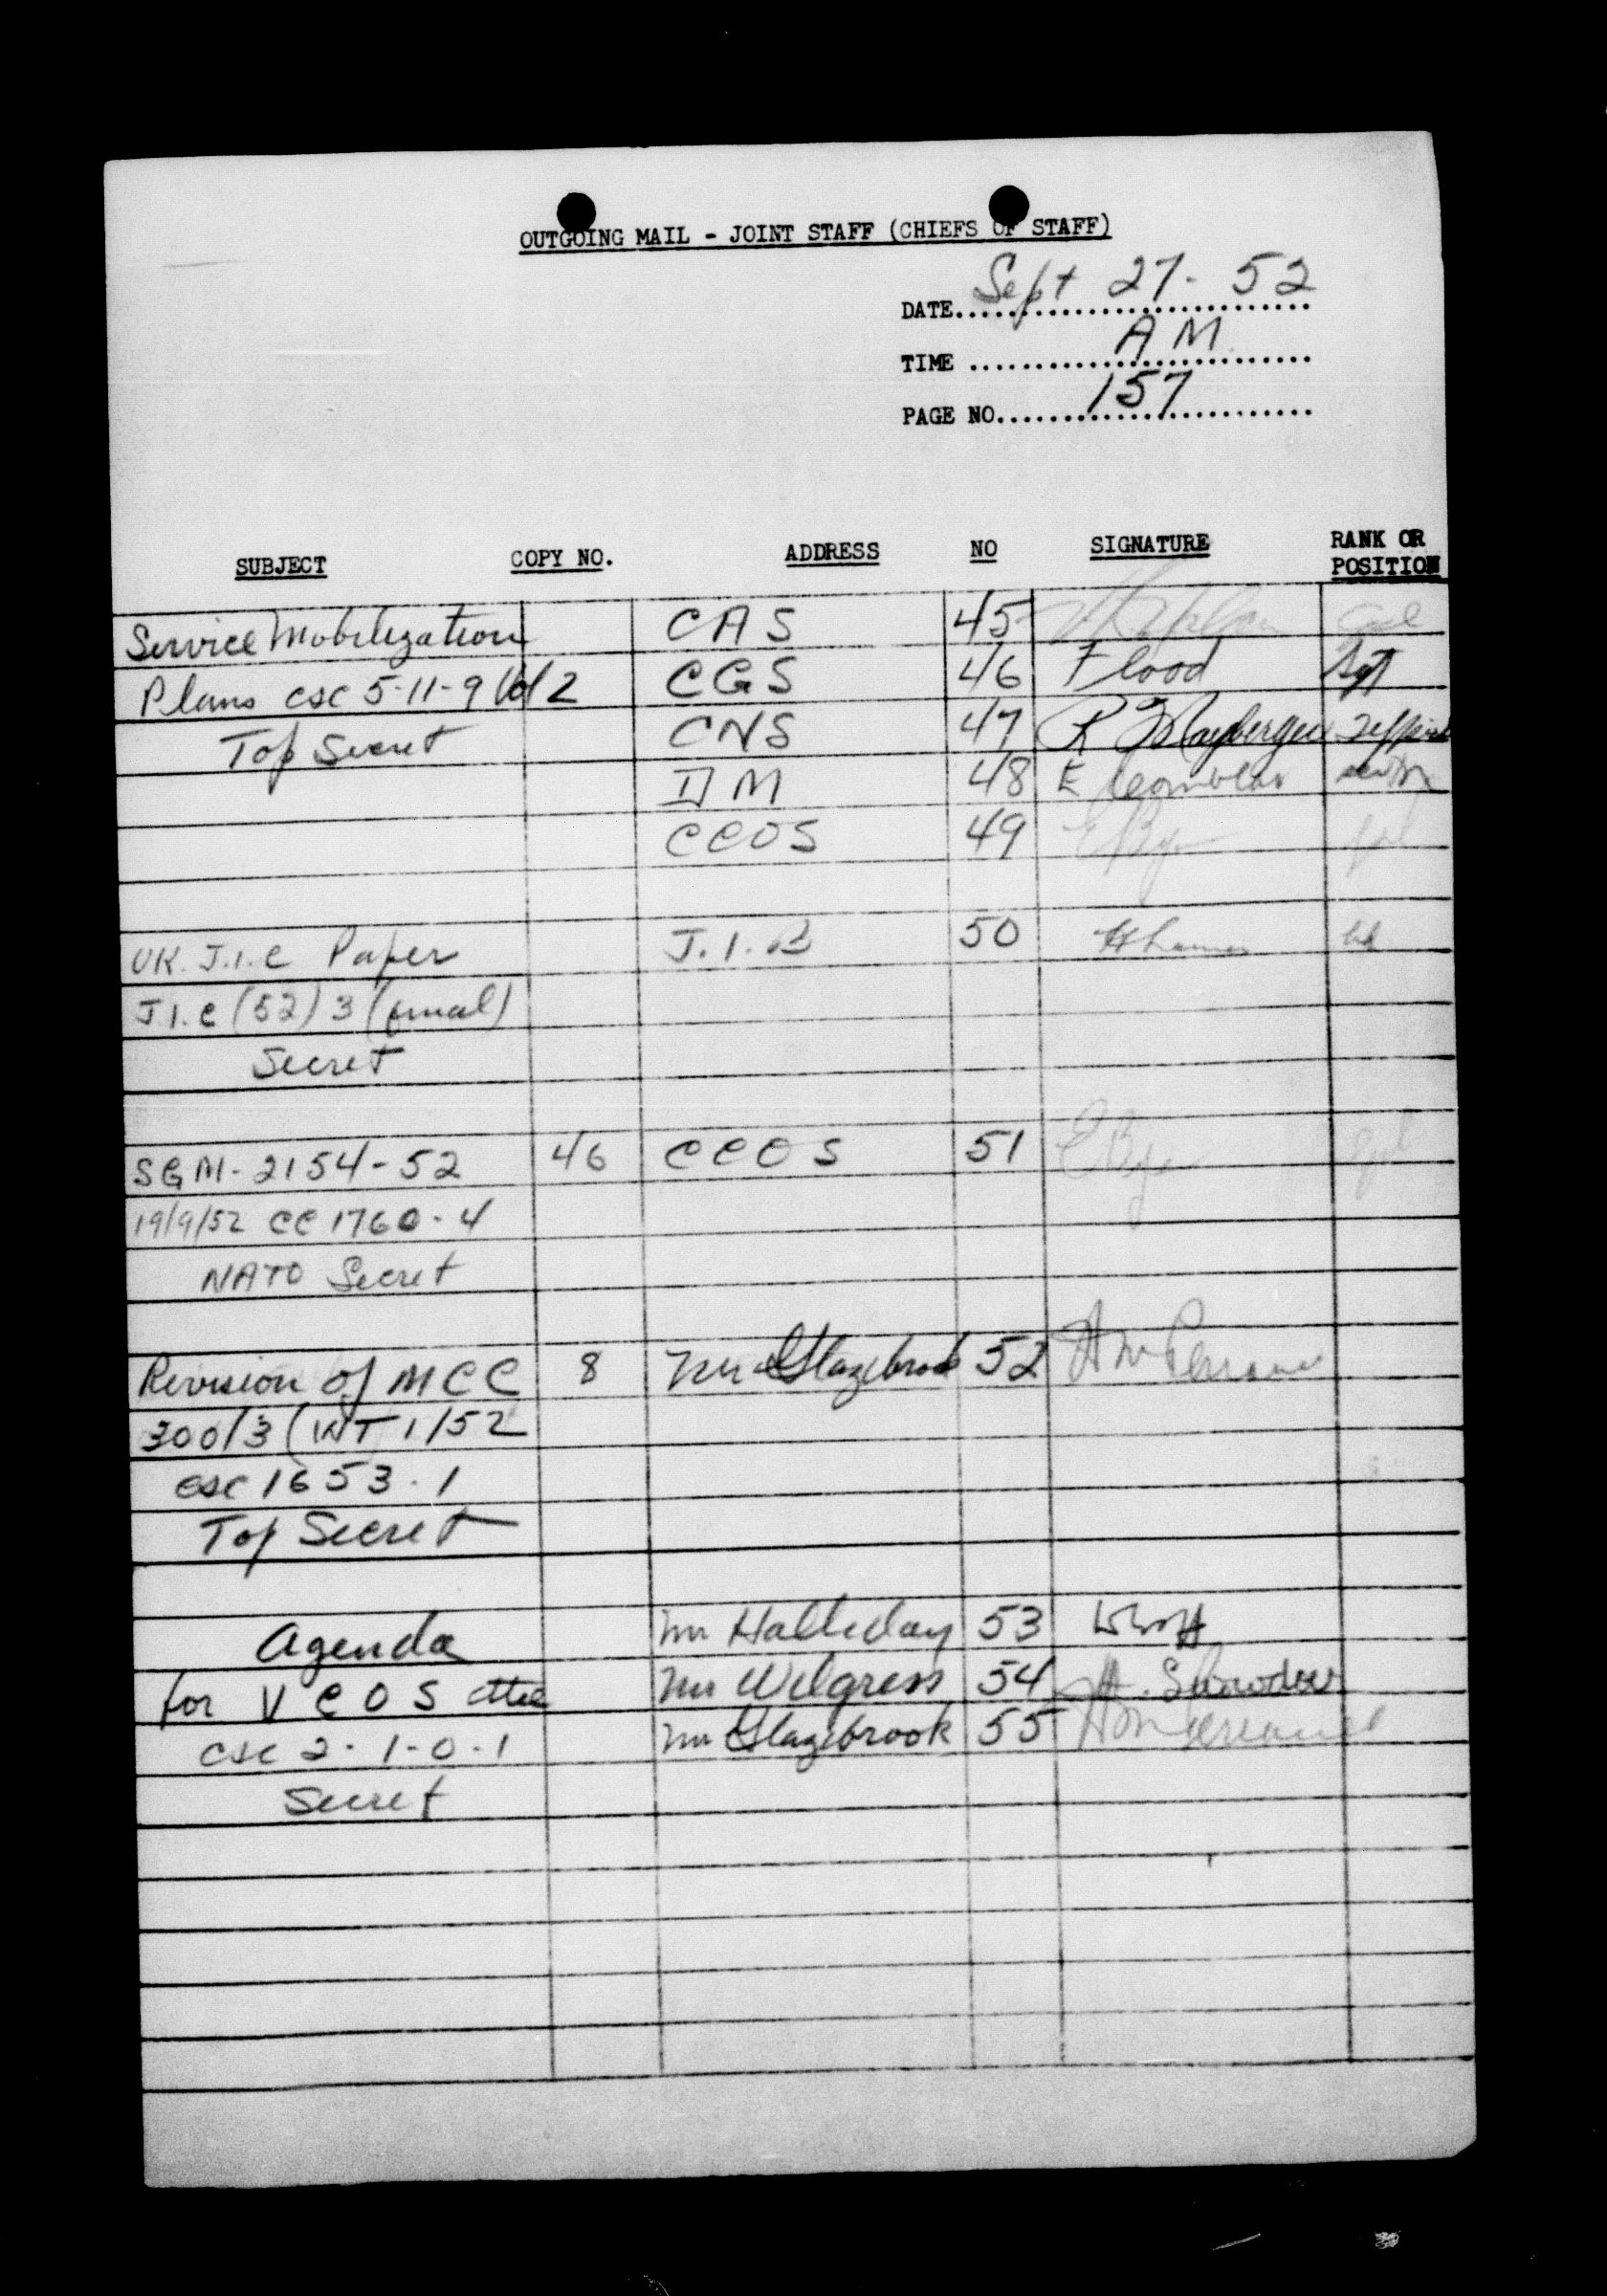 OUTGOING MAIL - JOINT STAFF (CHIEFS OF STAFF)
DATE Sept 27 - 52
TIME AM
PAGE NO. 157
SUBJECT COPY NO. ADDRESS NO SIGNATURE RANK OR POSITION
Service Mobilization CAS 45
Plans csc 5-11-9 Vol 2 CGS 46 Flood Sgt
Top Secret CNS 47 R
DM 48 E
CCOS 49
UK. J.I.C Paper J.I.B 50
J.I.C (52) 3 (final)
Secret
SGM-2154-52 46 CCOS 51
19/9/52 CC 1760-4
NATO Secret
Revision of MCC 8 Mr Glazebrook 52
300/3 (INT 1/52
csc 1653.1
Top Secret
Agenda Mr Halliday 53
for VCOS cttee Mr Wilgress 54 H.
csc 2-1-0-1 Mr Glazebrook 55
Secret